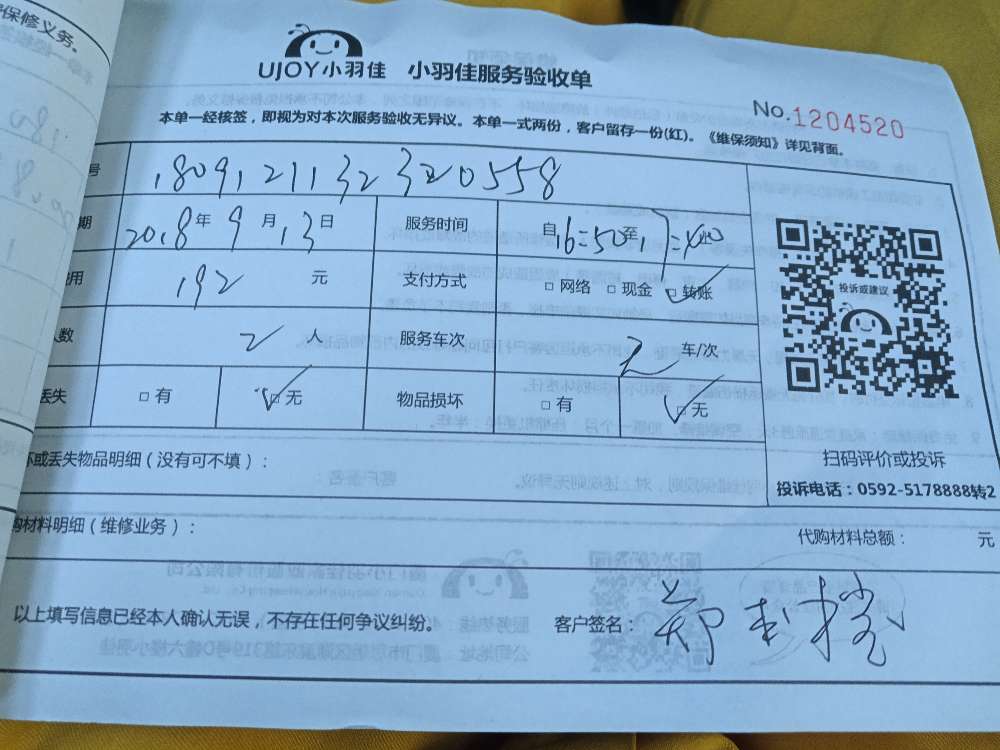 保修义务。
UJOY小羽佳 小羽佳服务验收单
No.1204520
本单一经核签，即视为对本次服务验收无异议。本单一式两份，客户留存一份(红)。《维保须知》详见背面。
号 1809121132320558
期 2018年9月13日 服务时间 自16:50至17:40
用 192元 支付方式 □网络 □现金 □转账
投诉或建议
人数 2人 服务车次 2车/次
丢失 □有 □无 物品损坏 □有 □无
扫码评价或投诉
坏或丢失物品明细（没有可不填）：
投诉电话：0592-5178888转2
购材料明细（维修业务）： 代购材料总额： 元
以上填写信息已经本人确认无误，不存在任何争议纠纷。 客户签名：郑